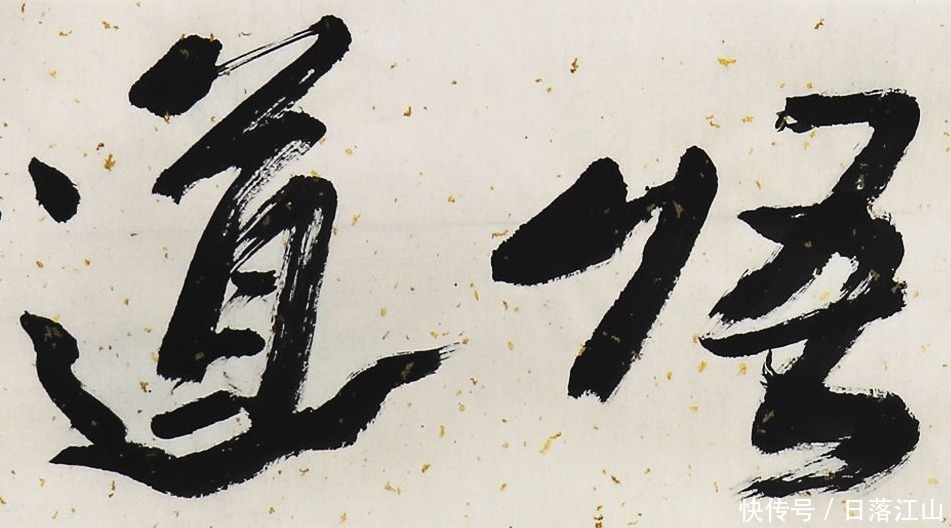 悟道
快传号 / 日落江山